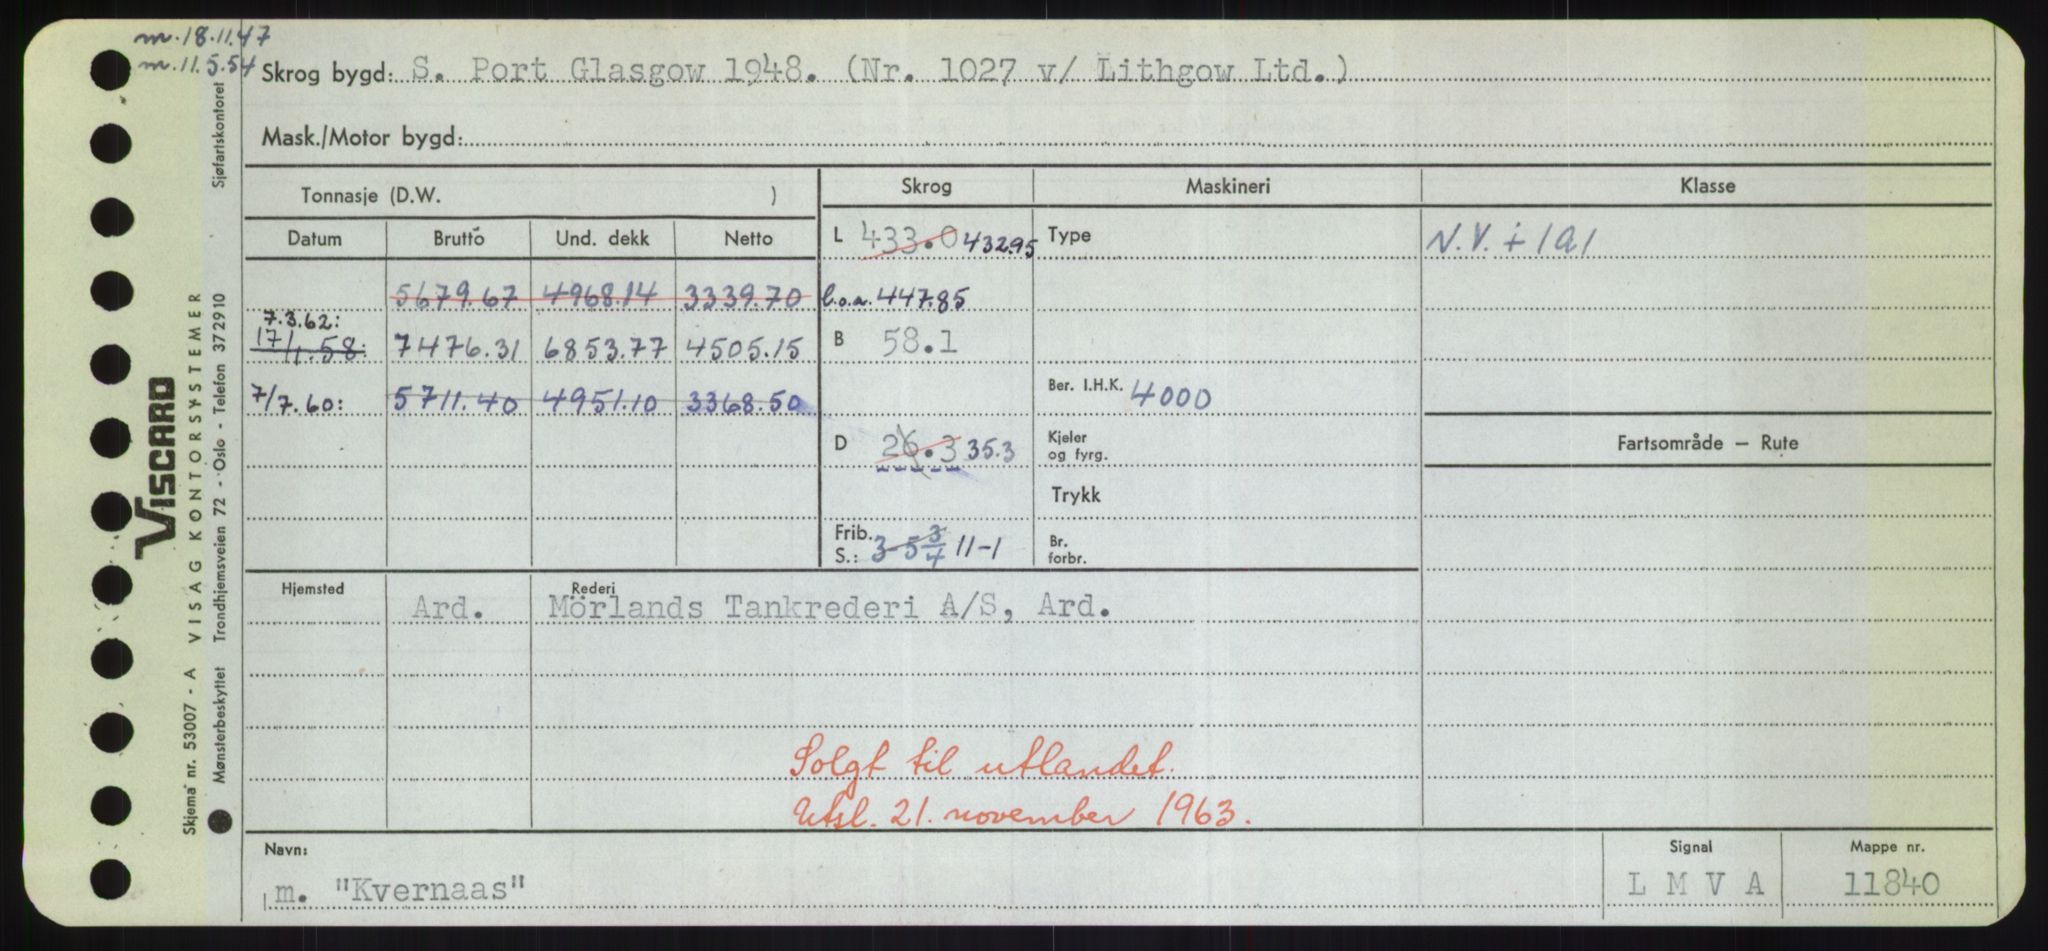 m. 18.11.47
m. 11.5.54
Skrog bygd: S. Port Glasgow 1948. (Nr. 1027 v/ Lithgow Ltd.)
Mask./Motor bygd:
Tonnasje (D.W. )
Skrog
Maskineri
Klasse
Datum
Brutto
Und. dekk
Netto
L 433.0 432.95
Type
N.V. + 1A1
5679.67 4968.14 3339.70
l.o.a. 447.85
7.3.62:
17/1.58: 7476.31 6853.77 4505.15
B 58.1
7/7.60: 5711.40 4951.10 3368.50
Ber. I.H.K. 4000
D 26.3 35.3
Kjeler
og fyrg.
Fartsområde — Rute
Trykk
Frib.
S.: 3-5 3/4 11-1
Br.
forbr.
Hjemsted
Rederi
Ard. Mörlands Tankrederi A/S, Ard.
Solgt til utlandet.
Utsl. 21. november 1963.
Navn:
m. "Kvernaas"
Signal
L M V A
Mappe nr.
11840
VISCARD
Skjema nr. 53007 - A VISAG KONTORSYSTEMER
Mønsterbeskyttet Trondhjemsveien 72 - Oslo - Telefon 372910 Sjøfartskontoret